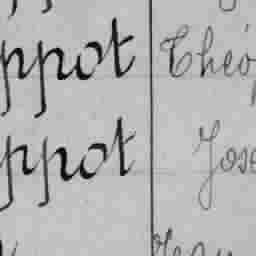 ppot Théo
ppot Jose